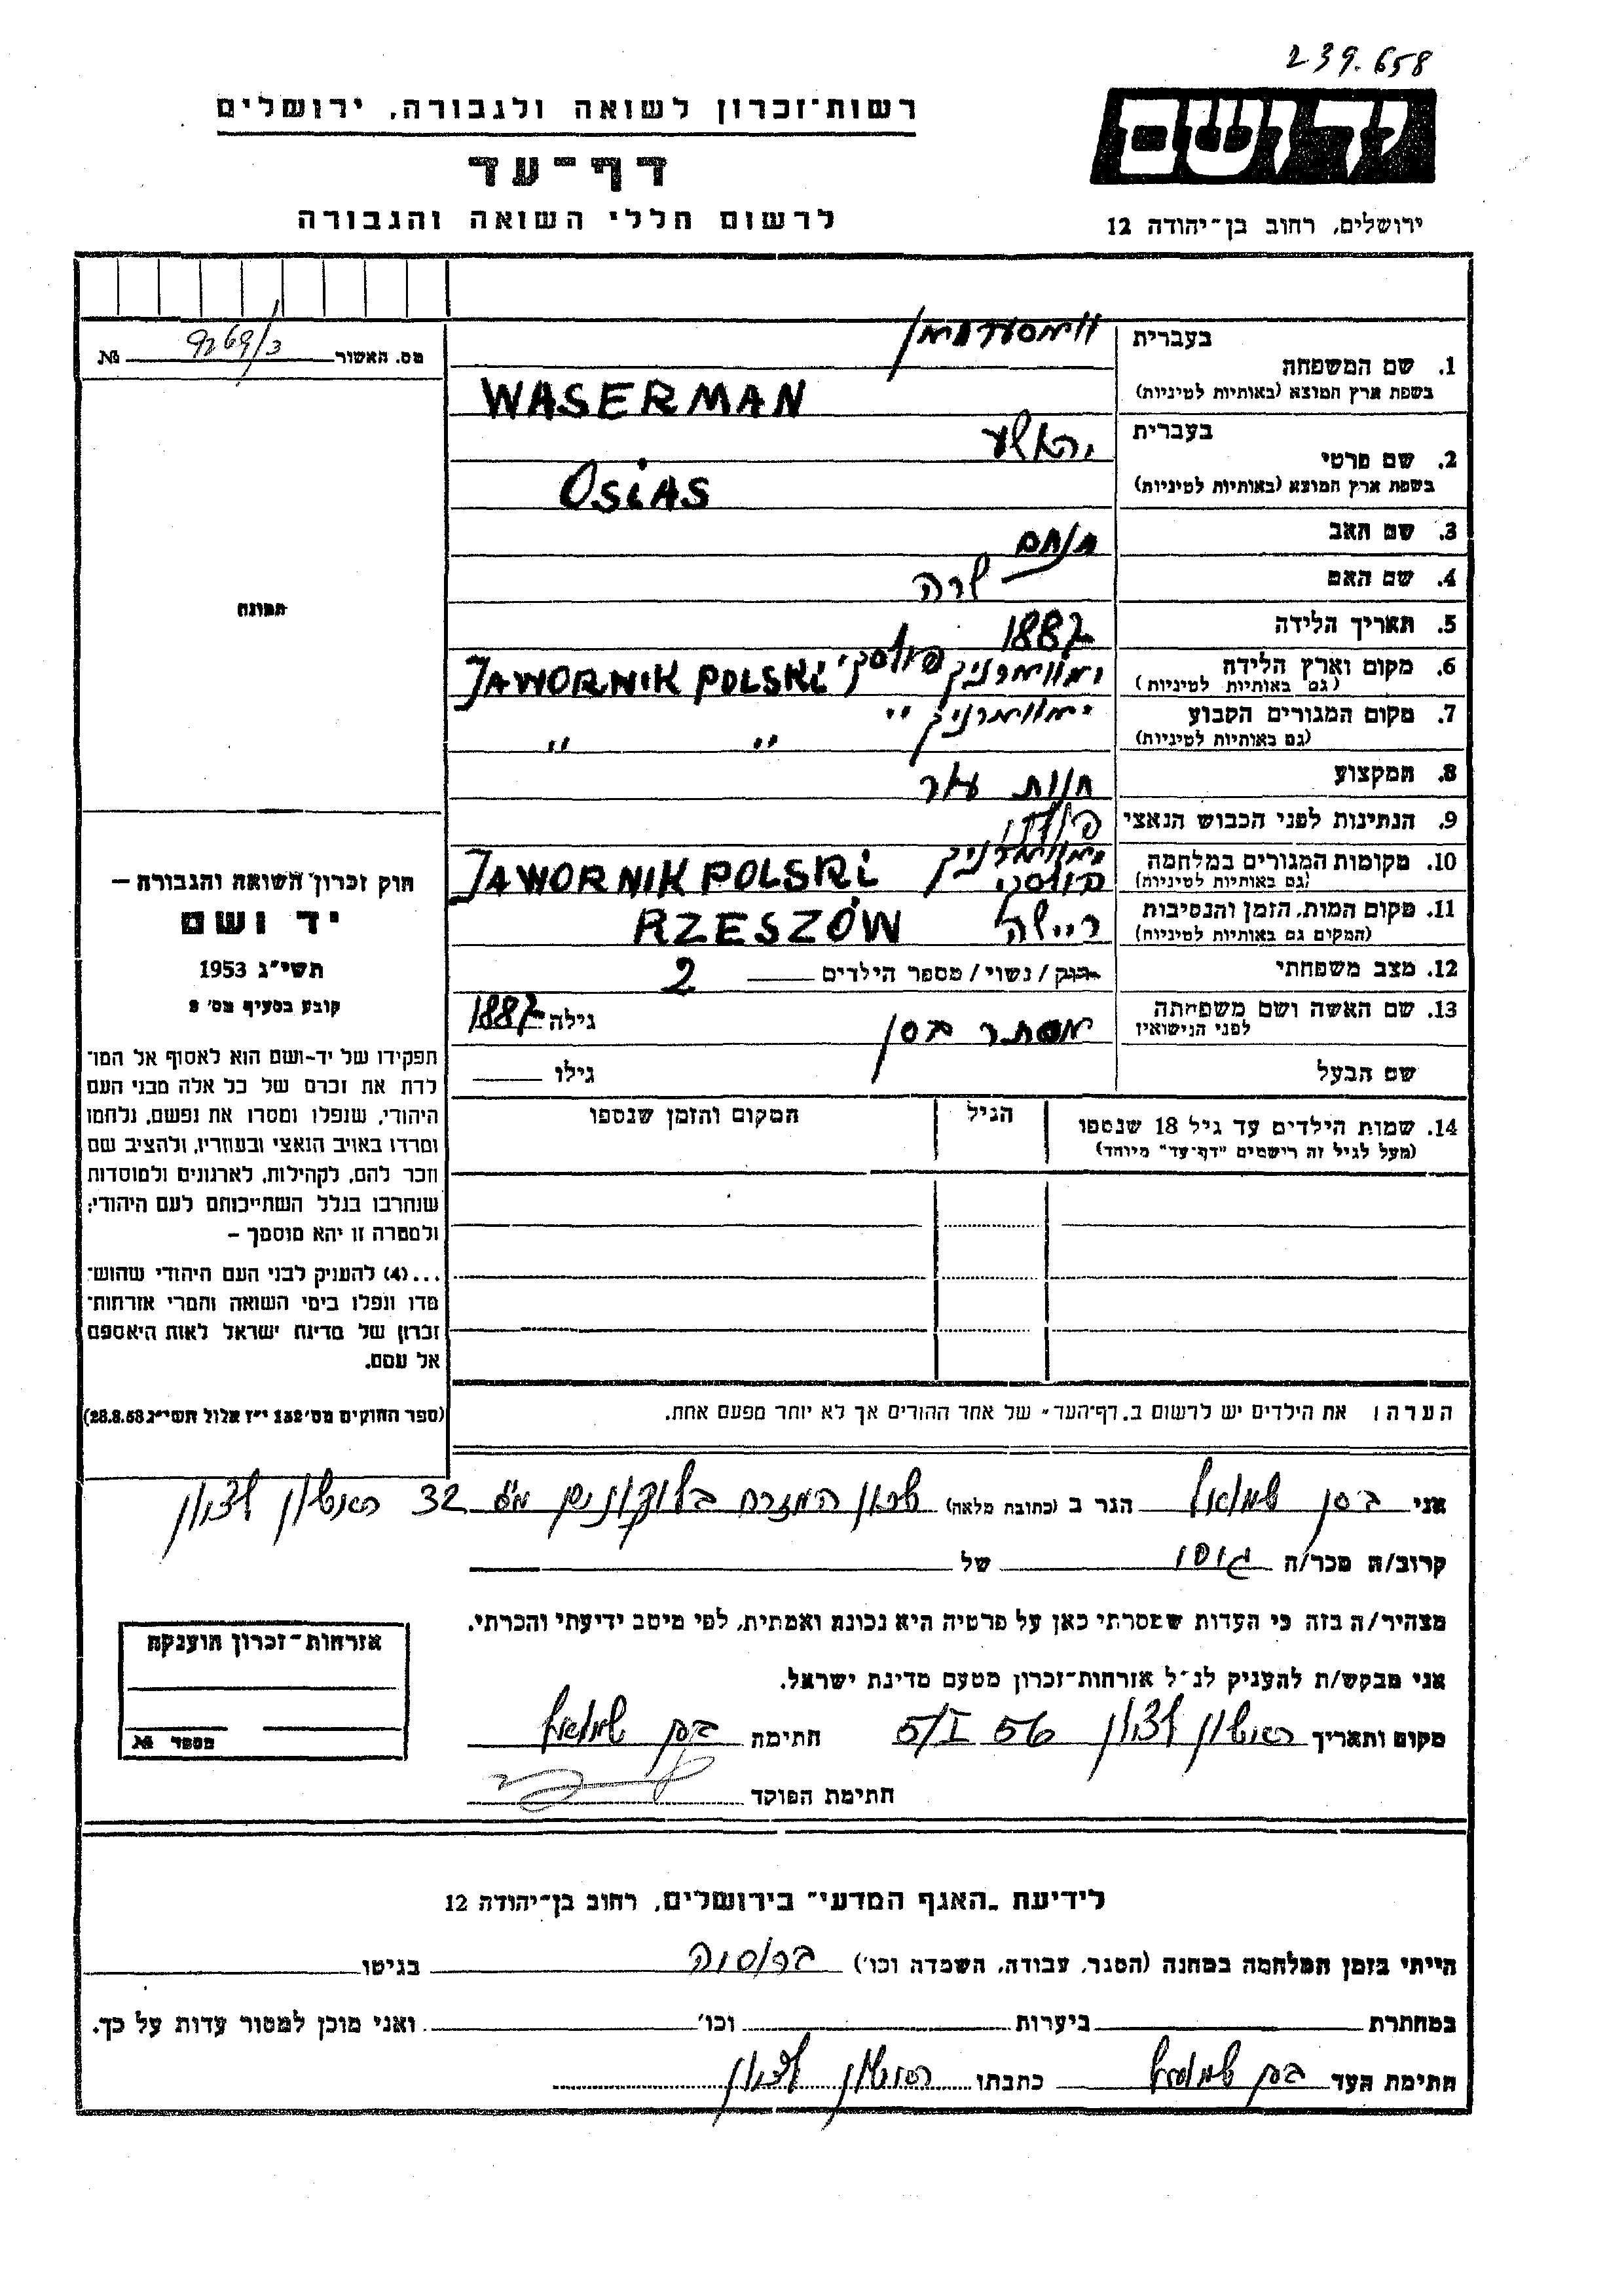 239.658
יד ושם
רשות־זכרון לשואה ולגבורה, ירושלים
דף־עד
לרשום חללי השואה והגבורה
ירושלים, רחוב בן־יהודה 12
מס. האשור 9269/3 №
תמונה
חוק זכרון השואה והגבורה —
יד ושם
תשי״ג 1953
קובע בסעיף מס׳ 2
תפקידו של יד־ושם הוא לאסוף אל המו־
לדת את זכרם של כל אלה מבני העם
היהודי, שנפלו ומסרו את נפשם, נלחמו
ומרדו באויב הנאצי ובעוזריו, ולהציב שם
וזכר להם, לקהילות, לארגונים ולמוסדות
שנחרבו בגלל השתייכותם לעם היהודי;
ולמטרה זו יהא מוסמך —
...(4) להעניק לבני העם היהודי שהוש־
מדו ונפלו בימי השואה והמרי אזרחות־
זכרון של מדינת ישראל לאות היאספם
אל עמם.
(ספר החוקים מס׳ 132 י״ז אלול תשי״ג 28.8.53)
1. שם המשפחה
בעברית וואסערמאן
בשפת ארץ המוצא (באותיות לטיניות) WASERMAN
2. שם פרטי
בעברית יהאשע
בשפת ארץ המוצא (באותיות לטיניות) OSiAS
3. שם האב מנחם
4. שם האם שרה
5. תאריך הלידה 1887
6. מקום וארץ הלידה יאווארניק פולסקי JAWORNIK POLSKI
(גם באותיות לטיניות)
7. מקום המגורים הקבוע יאווארניק ״ ״ ״
(גם באותיות לטיניות)
8. המקצוע חנות עור
9. הנתינות לפני הכבוש הנאצי פולני
10. מקומות המגורים במלחמה יאווארניק פולסקה JAWORNIK POLSKI
(גם באותיות לטיניות)
11. מקום המות, הזמן והנסיבות ריישה RZESZÓW
(המקום גם באותיות לטיניות)
12. מצב משפחתי רווק/נשוי/ מספר הילדים 2
13. שם האשה ושם משפחתה אסתר בסן גילה 1887
לפני הנישואין
שם הבעל גילו
14. שמות הילדים עד גיל 18 שנספו הגיל המקום והזמן שנספו
(מעל לגיל זה רישמים "דף־עד" מיוחד)
הערה: את הילדים יש לרשום ב„דף־העד״ של אחד ההורים אך לא יותר מפעם אחת.
אני בסן שמואל הגר ב (כתובת מלאה) שכון המזרח בלוקונים מס 32 ראשון לציון
קרוב/ה מכר/ה גיסו של
מצהיר/ה בזה כי העדות שמסרתי כאן על פרטיה היא נכונה ואמתית, לפי מיטב ידיעתי והכרתי.
אני מבקש/ת להעניק לנ״ל אזרחות־זכרון מטעם מדינת ישראל.
מקום ותאריך ראשון לציון 5/I 56 חתימה בסן שמואל
חתימת הפוקד
אזרחות־זכרון הוענקה
מספר №
לידיעת „האגף המדעי״ בירושלים, רחוב בן־יהודה 12
הייתי בזמן המלחמה במחנה (הסגר, עבודה, השמדה וכו׳) ברוסיה בגיטו
במחתרת ביערות וכו׳ ואני מוכן למסור עדות על כך.
חתימת העד בסן שמואל כתבתו ראשון לציון